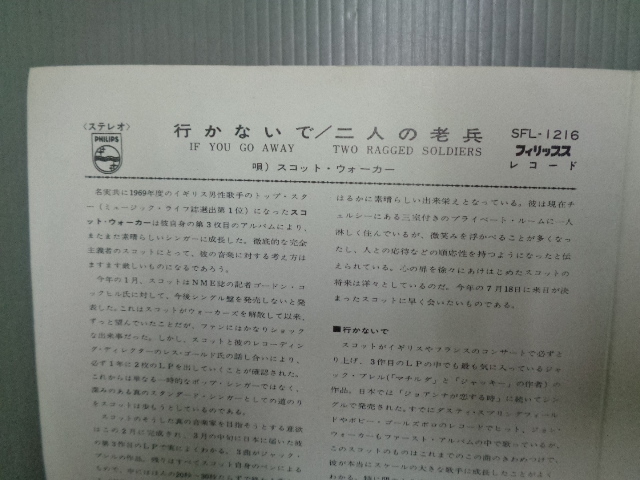 〈ステレオ〉
PHILIPS
行かないで/二人の老兵
IF YOU GO AWAY TWO RAGGED SOLDIERS
唄)スコット・ウォーカー
SFL-1216
フィリップス
レコード
名実共に1969年度のイギリス男性歌手のトップ・スタ
ー(ミュージック・ライフ誌選出第1位)になったスコ
ット・ウォーカーは彼自身の第3枚目のアルバムにより、
またまた素晴らしいシンガーに成長した。徹底的な完全
主義者のスコットにとって、彼の音楽に対する考え方は
ますます厳しいものになるであろう。
今年の1月、スコットはNME誌の記者ゴードン・コ
ックヒル氏に対して、今後シングル盤を発売しないと発
表した。これはスコットがウォーカーズを解散して以来、
ずっと望んでいたことだが、ファンにはかなりショック
な出来事だった。しかし、スコットと彼のレコーディン
グ・ディレクターのレス・ゴールド氏の話し合いにより、
必ず1年に2枚のLPを出していくことが確認された。
これからは単なる一時的なポップ・シンガーではなく、
深みのある真のスタンダード・シンガーとしての道のり
をスコットは歩もうとしているのである。
スコットのそうした真の音楽家を目指そうとする意欲
はこの3月に完成され、3月の中旬に日本に届いた彼
の第3作目のLPで実によくわかる。3曲がジャック・
ブレルの作品。残りはすべてスコット自身のペンによる
はるかに素晴らしい出来栄えとなっている。彼は現在チ
ェルシーにある三室付きのプライベート・ルームに一人
淋しく住んでいるが、微笑みを浮かべることが多くなっ
たし、人との応待などの順応性を持つようになったと伝
えられている。心の扉を徐々にあけはじめたスコットの
将来は洋々としているのだ。今年の7月18日に来日が決
まったスコットに早く会いたいものである。
■行かないで
スコットがイギリスやフランスのコンサートで必ずと
り上げ、3作目のLPの中でも最も気に入っているジャ
ック・ブレル(「マチルダ」と「ジャッキー」の作者)の
作品。日本では「ジョアンナが恋する時」に続いてシン
グルで発売された。すでにダスティ・スプリングフィール
ドやボビー・ゴールズボロのレコードでもヒット、ジョン・
ウォーカーもファースト・アルバムの中で歌っているが、
このスコットのものはこれまでのこの曲のきわめつけで、
彼が本当にスケールの大きな歌手に成長したことがよく